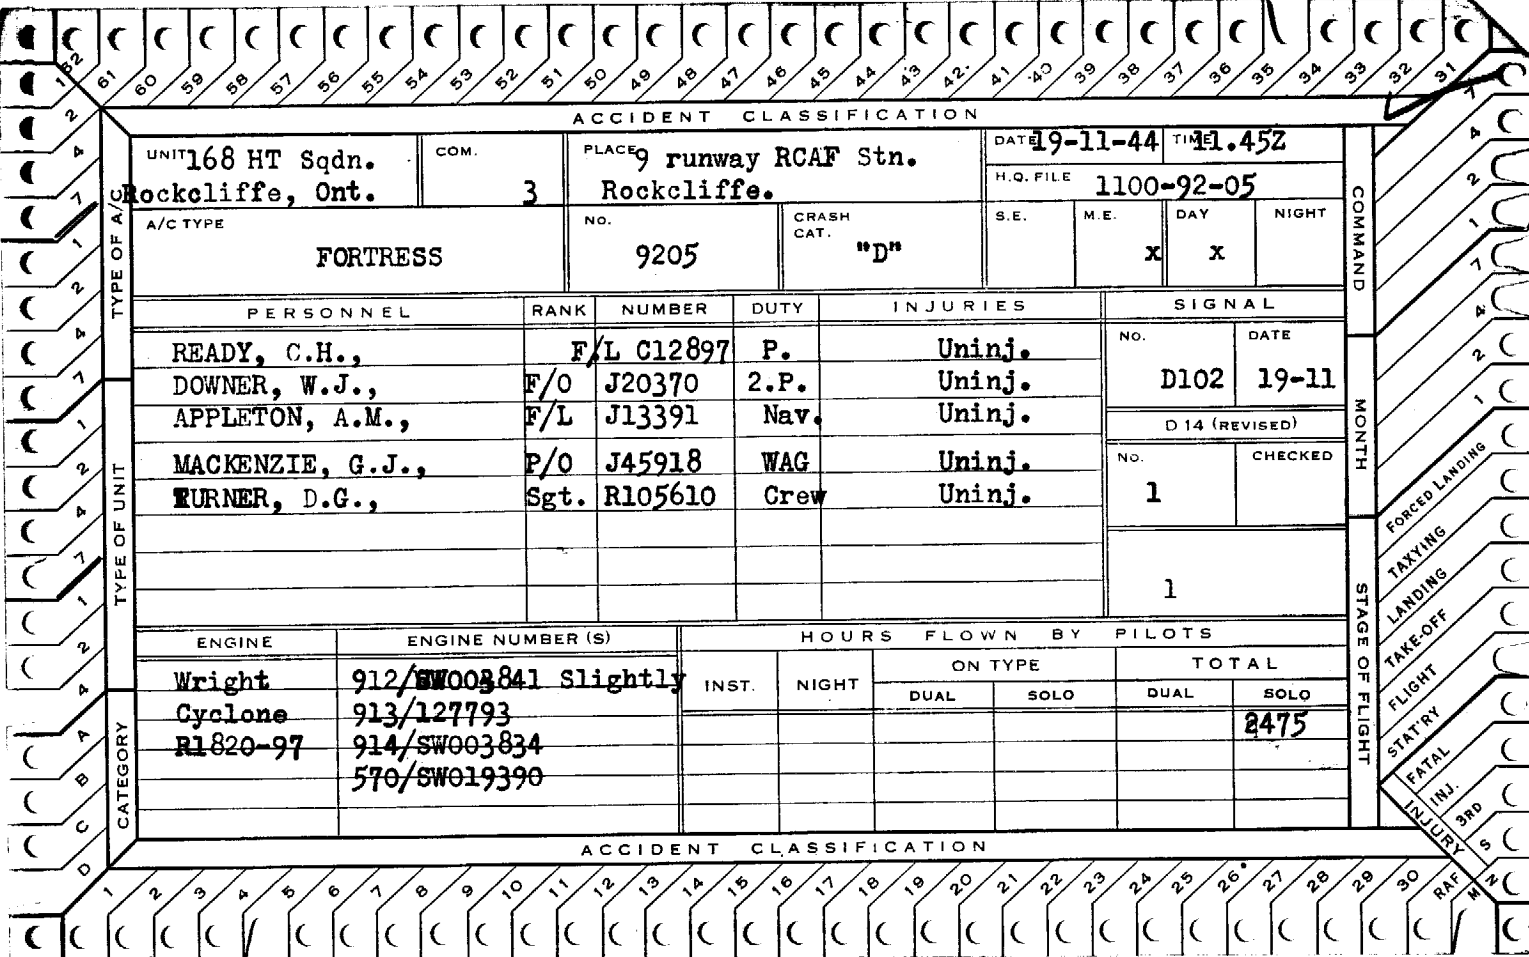 62 61 60 59 58 57 56 55 54 53 52 51 50 49 48 47 46 45 44 43 42 41 40 39 38 37 36 35 34 33 32 31
ACCIDENT CLASSIFICATION
UNIT 168 HT Sqdn.
Rockcliffe, Ont.
COM.
3
PLACE 9 runway RCAF Stn.
Rockcliffe.
DATE 19-11-44 TIME 11.45Z
H.Q. FILE 1100-92-05
A/C TYPE
FORTRESS
NO.
9205
CRASH
CAT.
"D"
S.E. M.E. DAY NIGHT
x x
PERSONNEL RANK NUMBER DUTY INJURIES
READY, C.H., F/L C12897 P. Uninj.
DOWNER, W.J., F/O J20370 2.P. Uninj.
APPLETON, A.M., F/L J13391 Nav. Uninj.
MACKENZIE, G.J., P/O J45918 WAG Uninj.
TURNER, D.G., Sgt. R105610 Crew Uninj.
SIGNAL
NO. DATE
D102 19-11
D 14 (REVISED)
NO. CHECKED
1
1
ENGINE ENGINE NUMBER (S)
Wright 912/SW003841 Slightly
Cyclone 913/127793
R1820-97 914/SW003834
570/SW019390
HOURS FLOWN BY PILOTS
INST. NIGHT ON TYPE TOTAL
DUAL SOLO DUAL SOLO
2475
ACCIDENT CLASSIFICATION
TYPE OF A/C
1 2 4 7 1 2 4 7
TYPE OF UNIT
1 2 4 7 1 2 4
CATEGORY
A B C D
COMMAND
7 4 2 1
MONTH
7 4 2 1
STAGE OF FLIGHT
FORCED LANDING
TAXYING
LANDING
TAKE-OFF
FLIGHT
STAT'RY
INJURY
FATAL
INJ.
3RD
S
N
M
RAF
1 2 3 4 5 6 7 8 9 10 11 12 13 14 15 16 17 18 19 20 21 22 23 24 25 26 27 28 29 30